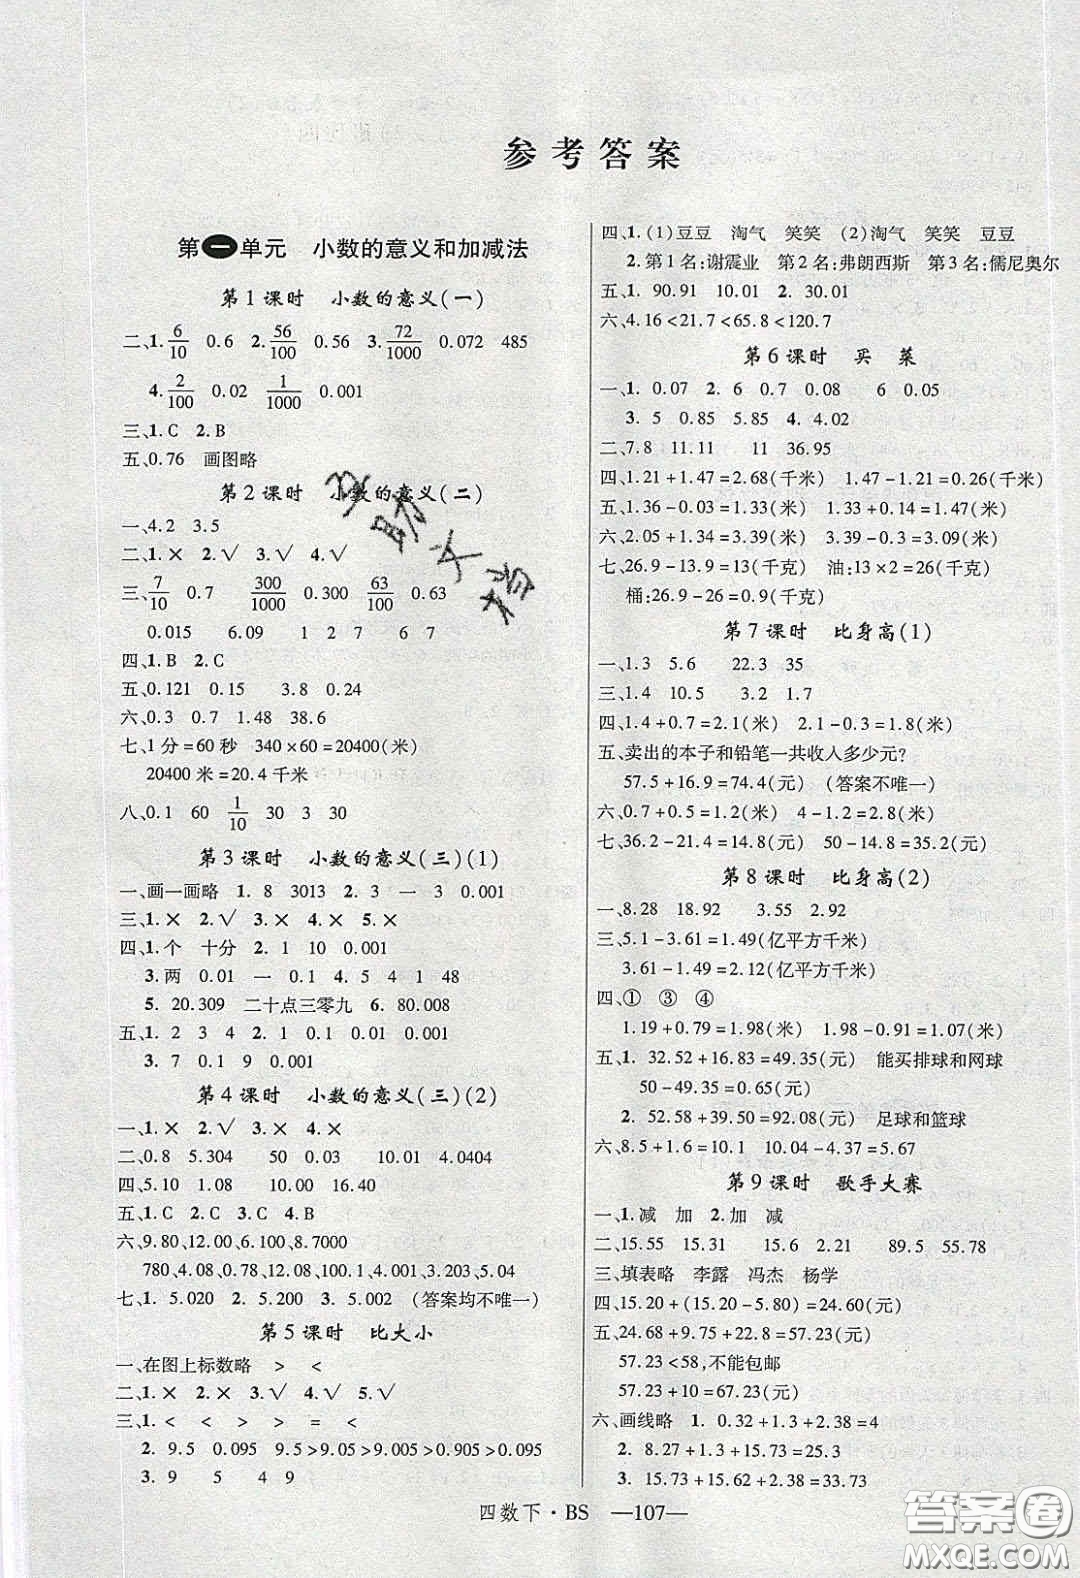 参考答案
第一单元 小数的意义和加减法
第1课时 小数的意义(一)
二、1. 6/10 0.6 2. 56/100 0.56 3. 72/1000 0.072 485
4. 2/100 0.02 1/1000 0.001
三、1.C 2.B
五、0.76 画图略
第2课时 小数的意义(二)
一、4.2 3.5
二、1.× 2.√ 3.√ 4.√
三、7/10 0.7 300/1000 0.300 63/100 0.63
0.015 6.09 1 2 7 6 7
四、1.B 2.C
五、0.121 0.15 3.8 0.24
六、0.3 0.7 1.48 38.6
七、1分=60秒 340×60=20400(米)
20400米=20.4千米
八、0.1 60 1/10 30 3 30
第3课时 小数的意义(三)(1)
一、画一画略 1. 8 3013 2. 3 一 3 0.001
三、1.× 2.√ 3.× 4.× 5.×
四、1.个 十分 2. 1 10 0.001
3.两 0.01 一 0.1 4. 5 4 1 48
5. 20.309 二十点三零九 6. 80.008
五、1. 2 3 4 2. 1 0.1 0.01 0.001
3. 7 0.1 9 0.001
第4课时 小数的意义(三)(2)
一、1.× 2.√ 3.√ 4.× 5.×
二、0.8 5.304 50 0.03 10 0.45
四、5.10 1.08 10.00 16.40
五、1.C 2.C 3.C 4.B
六、9.80、12.00、6.100、8.7000
780、4.08、0.78、12.08、100.1、4.001、3.203、5.05
七、1. 5.020 2. 5.200 3. 5.002 (答案均不唯一)
第5课时 比大小
一、在图上标数略 > <
二、1.× 2.× 3.√ 4.√ 5.√
三、1. < < > > = <
2. 9.5 0.095 9.5>9.05>9.005>0.905>0.095
3. 9 5 4 9
四、1.(1)豆豆 淘气 笑笑 (2)淘气 笑笑 豆豆
2.第1名:谢震业 第2名:弗朗西斯 第3名:儒尼奥尔
五、1. 90.91 10.01 2. 30.01
六、4.16<21.7<65.8<120.7
第6课时 买菜
一、1. 0.07 2. 6 0.7 0.08 6 0.05
3. 5 0.85 5.85 4. 4.02
二、7.8 11.11 11 36.95
四、1.21+1.47=2.68(千米) 1.47-1.21=0.26(千米)
五、1.36-0.03=1.33(米) 1.33+0.14=1.47(米)
六、2.05+1.34=3.39(米) 3.39-0.3=3.09(米)
七、26.9-13.9=13(千克) 油:13×2=26(千克)
桶:26.9-26=0.9(千克)
第7课时 比身高(1)
一、1.3 5.6 22.3 35
三、1.4 10.5 3.2 1.7
四、1.4+0.7=2.1(米) 2.1-0.3=1.8(米)
五、卖出的本子和铅笔一共收入多少元?
57.5+16.9=74.4(元) (答案不唯一)
六、0.7+0.5=1.2(米) 4-1.2=2.8(米)
七、36.2-21.4=14.8(元) 50-14.8=35.2(元)
第8课时 比身高(2)
一、8.28 18.92 3.55 2.92
三、5.1-3.61=1.49(亿平方千米)
3.61-1.49=2.12(亿平方千米)
四、① ③ ④
1.19+0.79=1.98(米) 1.98-0.91=1.07(米)
五、1. 32.52+16.83=49.35(元) 能买排球和网球
50-49.35=0.65(元)
2. 52.58+39.50=92.08(元) 足球和篮球
六、8.5+1.6=10.1 10.04-4.37=5.67
第9课时 歌手大赛
一、1.减 加 2.加 减
二、15.55 15.31 15.6 2.21 89.5 55.78
三、填表略 李露 冯杰 杨学
四、15.20+(15.20-5.80)=24.60(元)
五、24.68+9.75+22.8=57.23(元)
57.23<58,不能包邮
57.23+10=67.23(元)
六、画线略 1. 0.32+1.3+2.38=4
2. 8.27+1.3+15.73=25.3
3. 15.73+15.62+2.38=33.73
四数下·BS —107—
答案圈
MXQE.COM